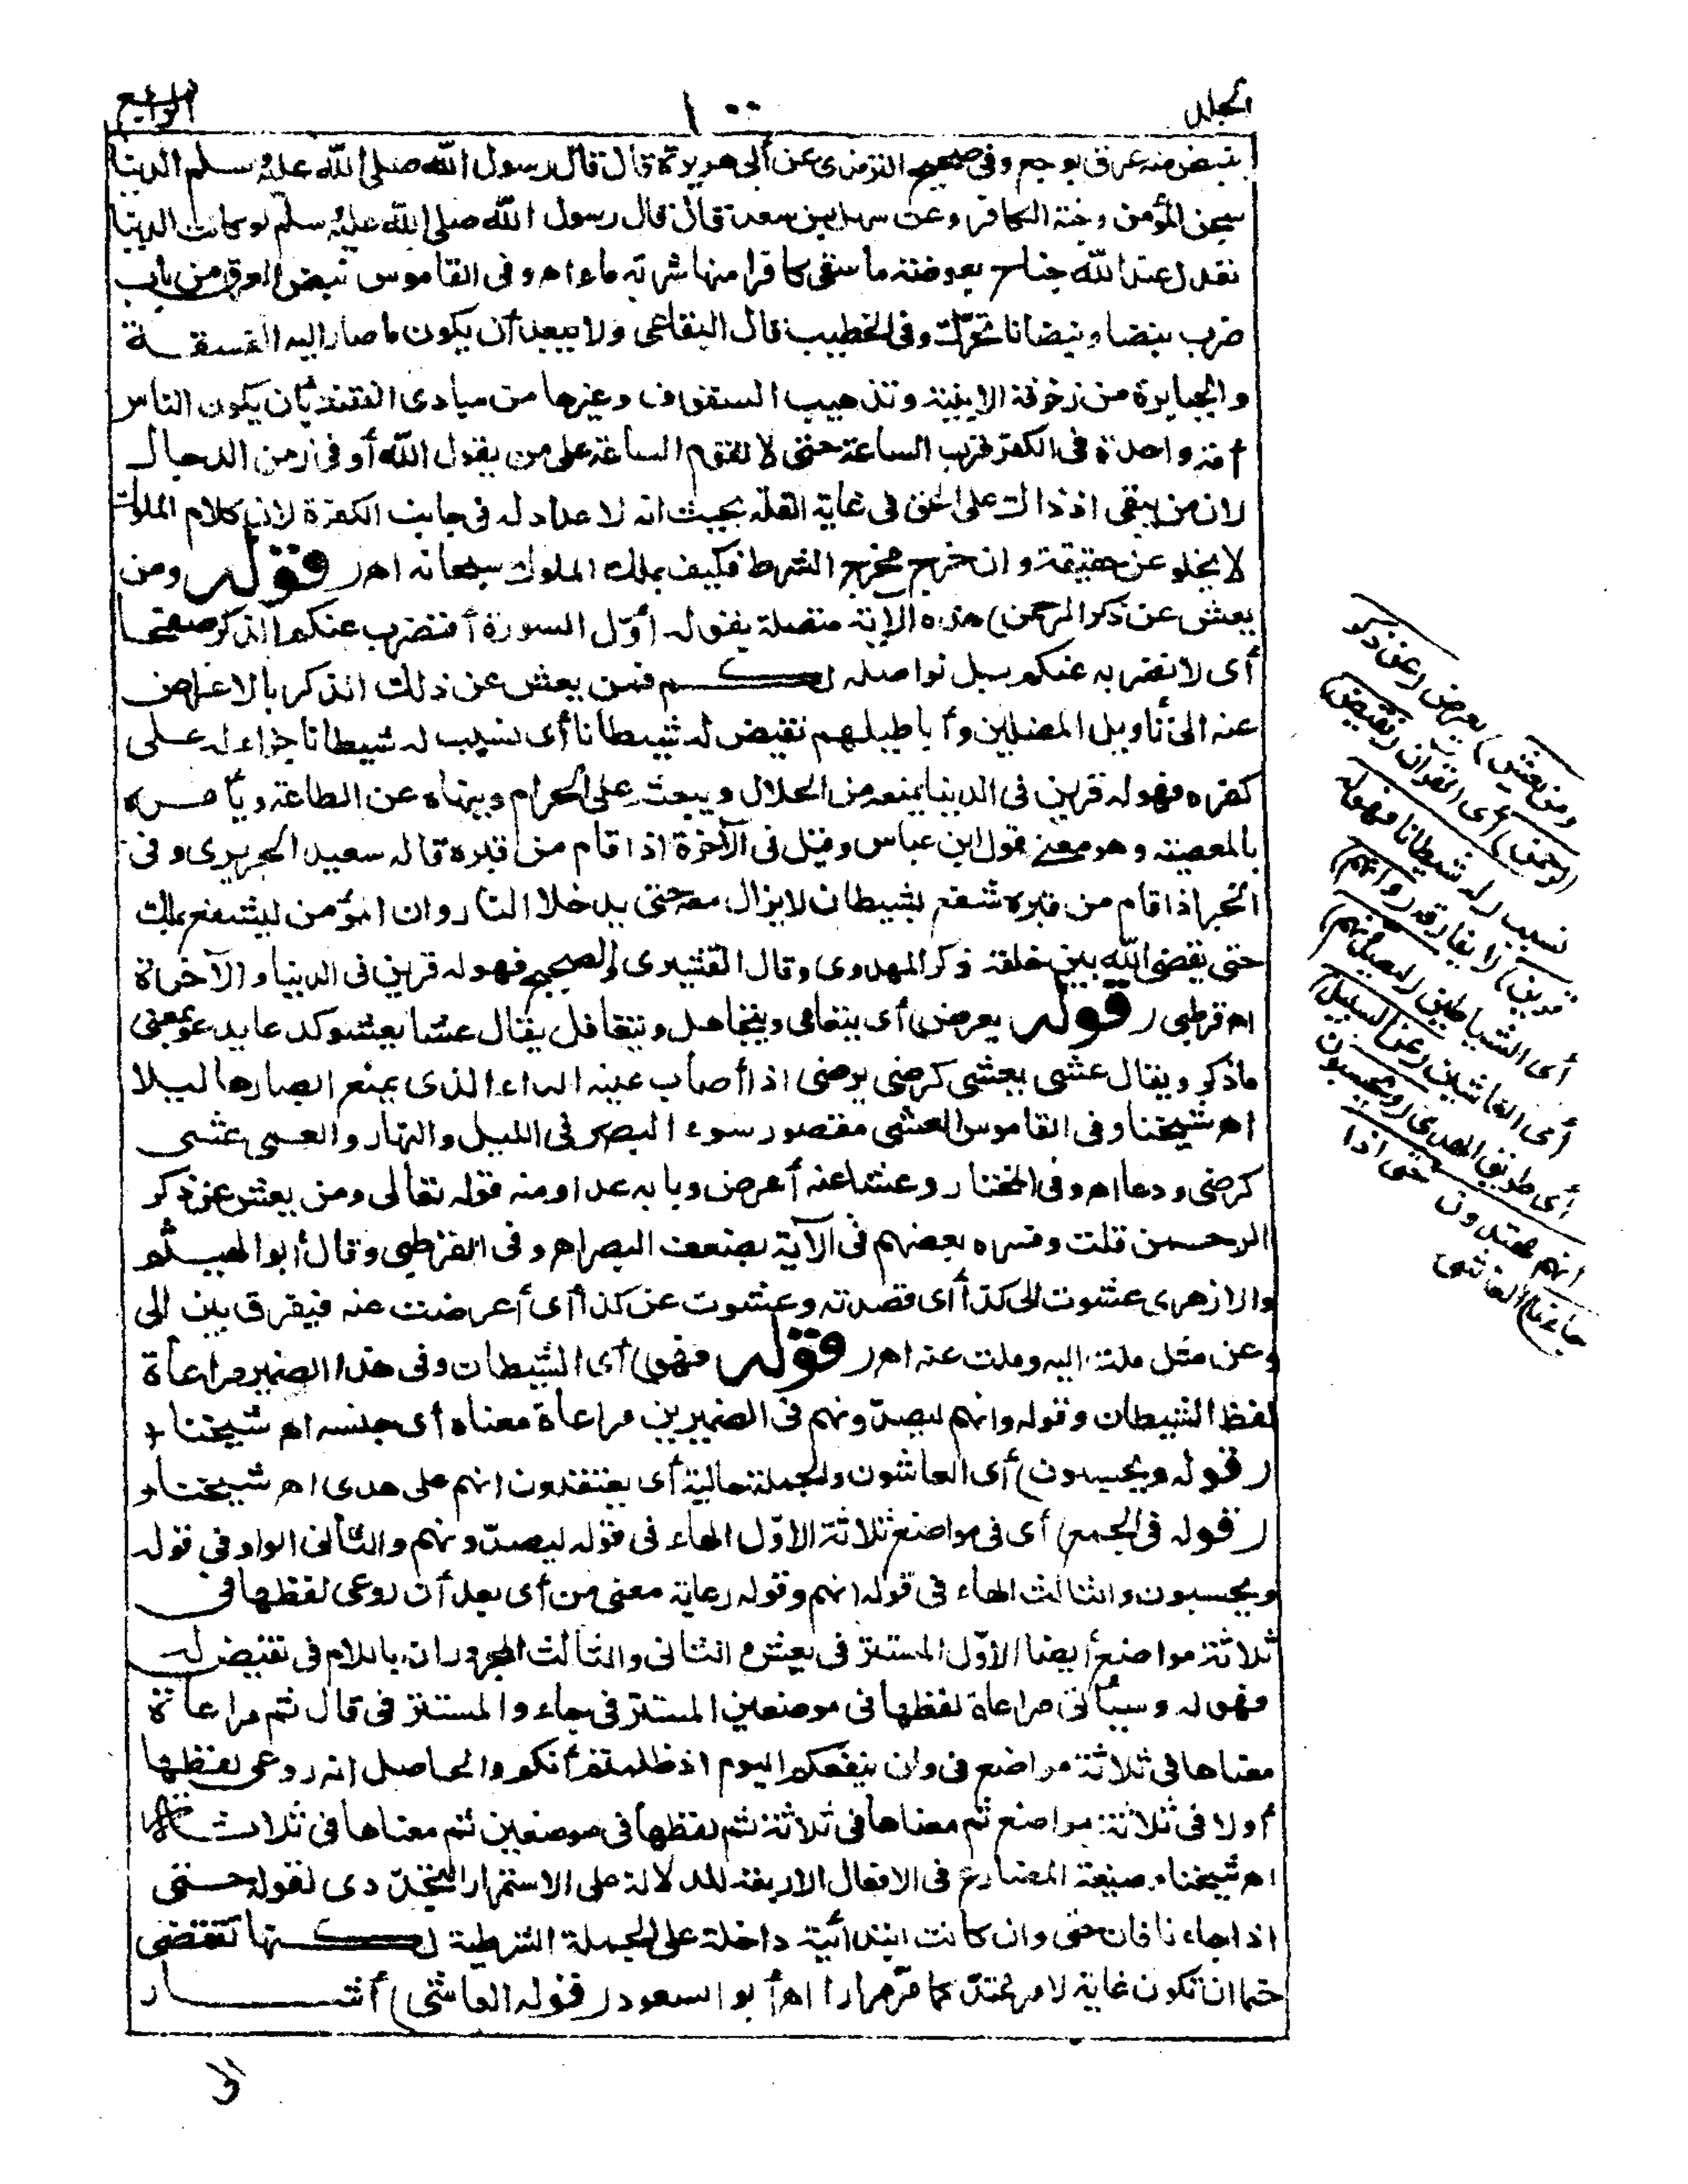 المجلد
١٠٠
الرابع
ينبض منه عرق يوجع وفى صحيح الترمذى عن أبى هريرة قال قال رسول الله صلى الله عليه سلم الدنيا
سجن المؤمن وجنة الكافر وعن سهل بن سعد قال قال رسول الله صلى الله عليه سلم لو كانت الدنيا
تعدل عند الله جناح بعوضة ما سقى كافرا منها شربة ماء اه وفى القاموس نبض العرق من باب
ضرب نبضا ونبضانا تحرّك وفى الخطيب قال البقاعى ولا يبعد أن يكون ما صار اليه الفسقة
والجبابرة من زخرفة الابنية وتذهيب السقوف وغيرها من مبادى الفتنة بأن يكون الناس
أمة واحدة فى الكفر قرب الساعة حتى لا تقوم الساعة على من يقول الله أو فى زمن الدجال
لان من يبقى اذ ذاك على الحق فى غاية القلة بحيث انه لا عداد له فى جانب الكفرة لان كلام الملوك
لا يخلو عن حقيقة وان خرج مخرج الشرط فكيف بملك الملوك سبحانه اهـ ( قوله ومن
يعش عن ذكر الرحمن) هذه الاية متصلة بقوله أوّل السورة أفنضرب عنكم الذكر صفحا
أى لا نضربه عنكم بل نواصله لكم فمن يعش عن ذلك الذكر بالاعراض
عنه الى تأويل المضلين وأباطيلهم نقيض له شيطانا أى نسبب له شيطانا جزاء له على
كفره فهو له قرين فى الدنيا يمنعه من الحلال ويبعثه على الحرام وينهاه عن الطاعة ويأمره
بالمعصية وهو معنى قول ابن عباس وقيل فى الآخرة اذا قام من قبره قاله سعيد الجريرى وفى
الخبر اذا قام من قبره شفع بشيطان لا يزال معه حتى يدخلا النار وان المؤمن ليشفع بملك
حتى يقضى الله بين خلقه ذكر المهدوى وقال القشيرى والصحيح فهو له قرين فى الدنيا والآخرة
اه قرطبى ( قوله يعرض) أى يتعامى ويتجاهل ويتغافل يقال عشا يعشو كدعا يدعو بمعنى
ما ذكر ويقال عشى يعشى كرضى يرضى اذا أصاب عينه الداء الذى يمنع ابصارها ليلا
اه شيخنا وفى القاموس العشى مقصور سوء البصر فى الليل والنهار والعمى عشى
كرضى ودعا اه وفى المختار وعشا عنه أعرض وبابه عدا ومنه قوله تعالى ومن يعش عن ذكر
الرحمن قلت وفسره بعضهم فى الآية بضعف البصر اهـ وفى القرطبى وقال أبو الهيثم
والازهرى عشوت الى كذا أى قصدته وعشوت عن كذا أى أعرضت عنه فيفرق بين الى
وعن مثل ملت اليه وملت عنه اهـ ( قوله فهو) أى الشيطان وفى هذا الضمير مراعاة
لفظ الشيطان وقوله وانهم ليصدّونهم فى الضميرين مراعاة معناه أى جنسه اه شيخنا
( قوله ويحسبون) أى العاشون والجملة حالية أى يعتقدون انهم على هدى اه شيخنا
( قوله فى الجمع) أى فى مواضع ثلاثة الاوّل الهاء فى قوله ليصدّونهم والثانى الواو فى قوله
ويحسبون والثالث الهاء فى قوله انهم وقوله رعاية معنى من أى بعد أن روعى لفظها فى
ثلاثة مواضع أيضا الاوّل المستتر فى يعش والثانى والثالث المجروران باللام فى نقيض له
فهو له وسيأتى مراعاة لفظها فى موضعين المستتر فى جاء والمستتر فى قال ثم مراعاة
معناها فى ثلاثة مواضع فى ولن ينفعكم اليوم اذ ظلمتم أنكم والحاصل انه روعى لفظها
أولا فى ثلاثة مواضع ثم معناها فى ثلاثة ثم لفظها فى موضعين ثم معناها فى ثلاثة
اه شيخنا وصيغة المضارع فى الافعال الاربعة للدلالة على الاستمرار التجدّدى لقوله حتى
اذا جاءنا فان حتى وان كانت ابتدائية داخلة على الجملة الشرطية لكنها تقتضى
حتما ان تكون غاية لامر ممتدّ كما مرّ مرارا اه أبو السعود ( قوله العاشى) أشار
الى
ومن يعش) يعرض (عن ذكر
الرحمن) أى القرآن (نقيض)
نسبب (له شيطانا فهو له
قرين) لا يفارقه (وانهم)
أى الشياطين (ليصدونهم)
أى العاشين (عن السبيل)
أى طريق الهدى (ويحسبون
انهم مهتدون حتى اذا
جاءنا) العاشى